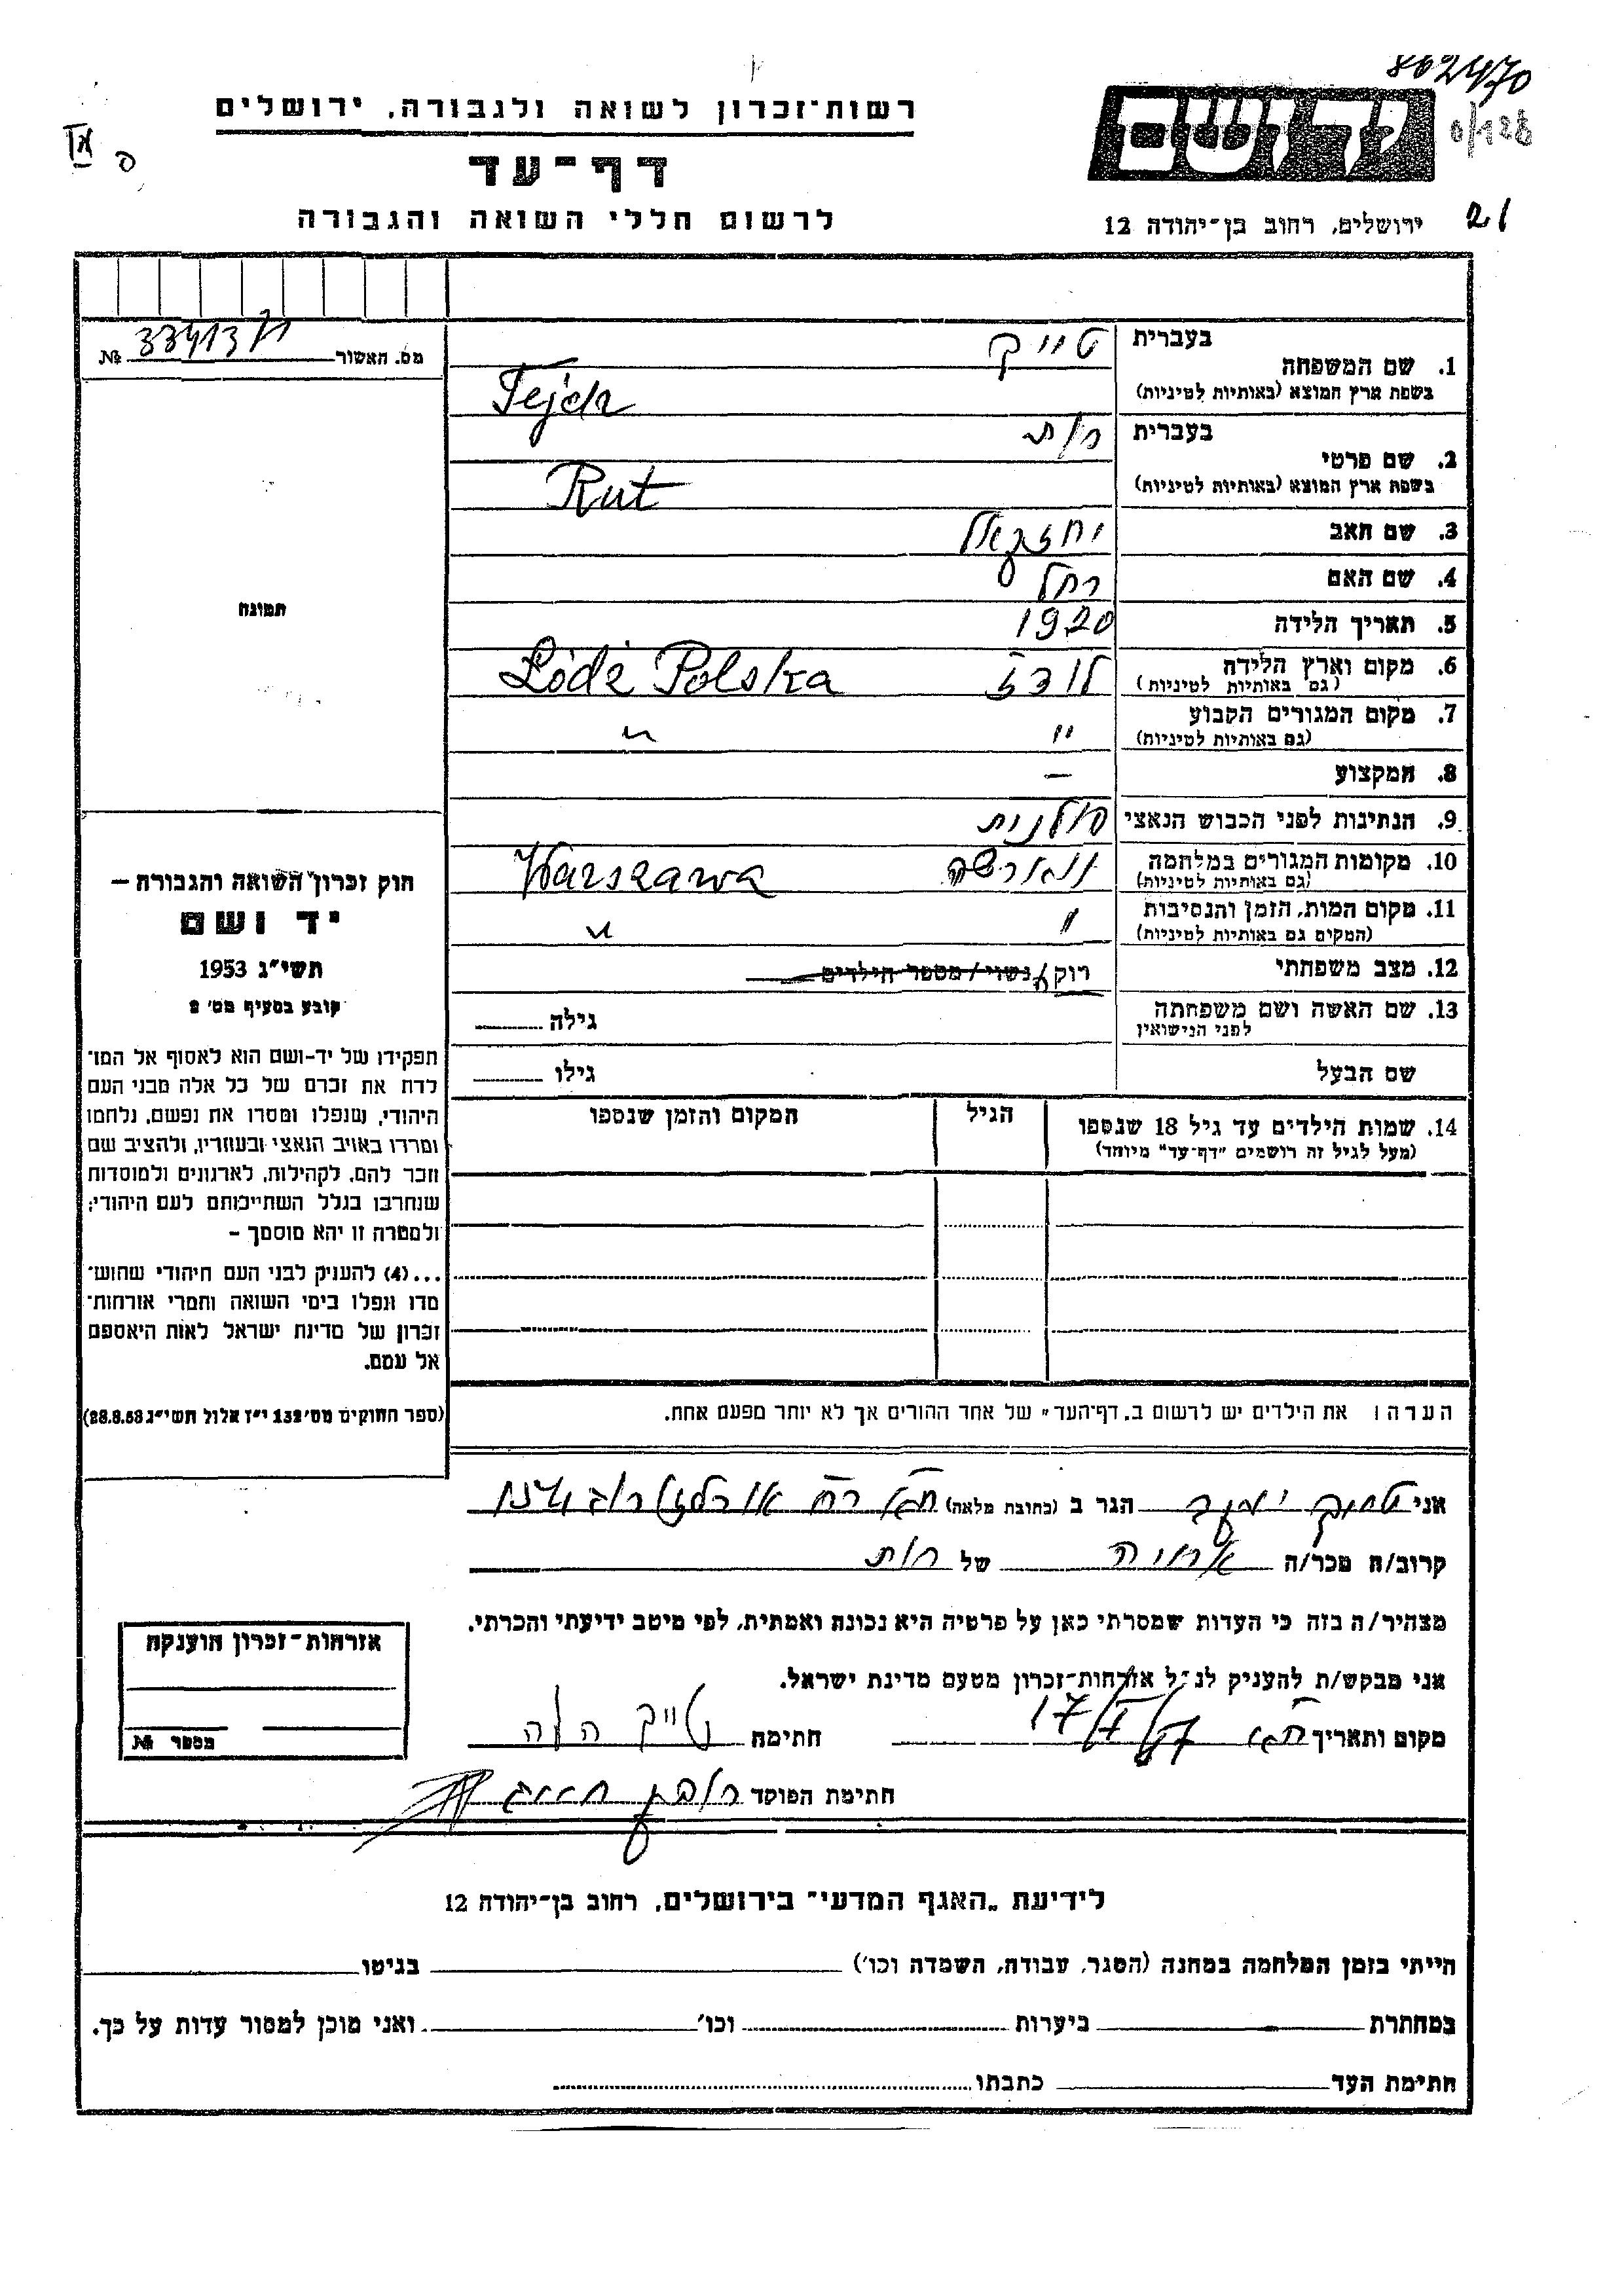 862470
רשות-זכרון לשואה ולגבורה, ירושלים
דף-עד
לרשום חללי השואה והגבורה
יד ושם
ירושלים, רחוב בן-יהודה 12
21
מס. האשור № 33413
1. שם המשפחה
בעברית טייך
בשפת ארץ המוצא (באותיות לטיניות)
2. שם פרטי
בעברית רות
בשפת ארץ המוצא (באותיות לטיניות) Rut
3. שם האב יחזקאל
4. שם האם רחל
5. תאריך הלידה 1920
6. מקום וארץ הלידה לודז Łódź Polska
(גם באותיות לטיניות)
7. מקום המגורים הקבוע " "
(גם באותיות לטיניות)
8. המקצוע —
9. הנתינות לפני הכבוש הנאצי פולנית
10. מקומות המגורים במלחמה ווארשה Warszawa
(גם באותיות לטיניות)
11. מקום המות, הזמן והנסיבות " "
(המקום גם באותיות לטיניות)
12. מצב משפחתי רוק/ה נשוי/מספר הילדים
13. שם האשה ושם משפחתה גילה
לפני הנישואין
שם הבעל גילו
14. שמות הילדים עד גיל 18 שנספו הגיל המקום והזמן שנספו
(מעל לגיל זה רושמים "דף-עד" מיוחד)
הערה: את הילדים יש לרשום ב„דף-העד" של אחד ההורים אך לא יותר מפעם אחת.
תמונה
חוק זכרון השואה והגבורה –
יד ושם
תשי"ג 1953
קובע בסעיף מס' 2
תפקידו של יד-ושם הוא לאסוף אל המו־
לדת את זכרם של כל אלה מבני העם
היהודי, שנפלו ומסרו את נפשם, נלחמו
ומרדו באויב הנאצי ובעוזריו, ולהציב שם
וזכר להם, לקהילות, לארגונים ולמוסדות
שנחרבו בגלל השתייכותם לעם היהודי;
ולמטרה זו יהא מוסמך –
...(4) להעניק לבני העם היהודי שהוש־
מדו ונפלו בימי השואה והמרי אזרחות־
זכרון של מדינת ישראל לאות היאספם
אל עמם.
(ספר החוקים מס' 132 י"ז אלול תשי"ג 28.8.53)
אני הגר ב (כתובת מלאה)
קרוב/ה מכר/ה של רות
מצהיר/ה בזה כי העדות שמסרתי כאן על פרטיה היא נכונה ואמתית, לפי מיטב ידיעתי והכרתי.
אני מבקש/ת להעניק לנ"ל אזרחות-זכרון מטעם מדינת ישראל.
מקום ותאריך חתימה טייך הלה
חתימת הפוקד ראובן
אזרחות-זכרון הוענקה
מספר №
לידיעת „האגף המדעי" בירושלים, רחוב בן-יהודה 12
הייתי בזמן המלחמה במחנה (הסגר, עבודה, השמדה וכו') בגיטו
במחתרת ביערות וכו' ואני מוכן למסור עדות על כך.
חתימת העד כתבתו